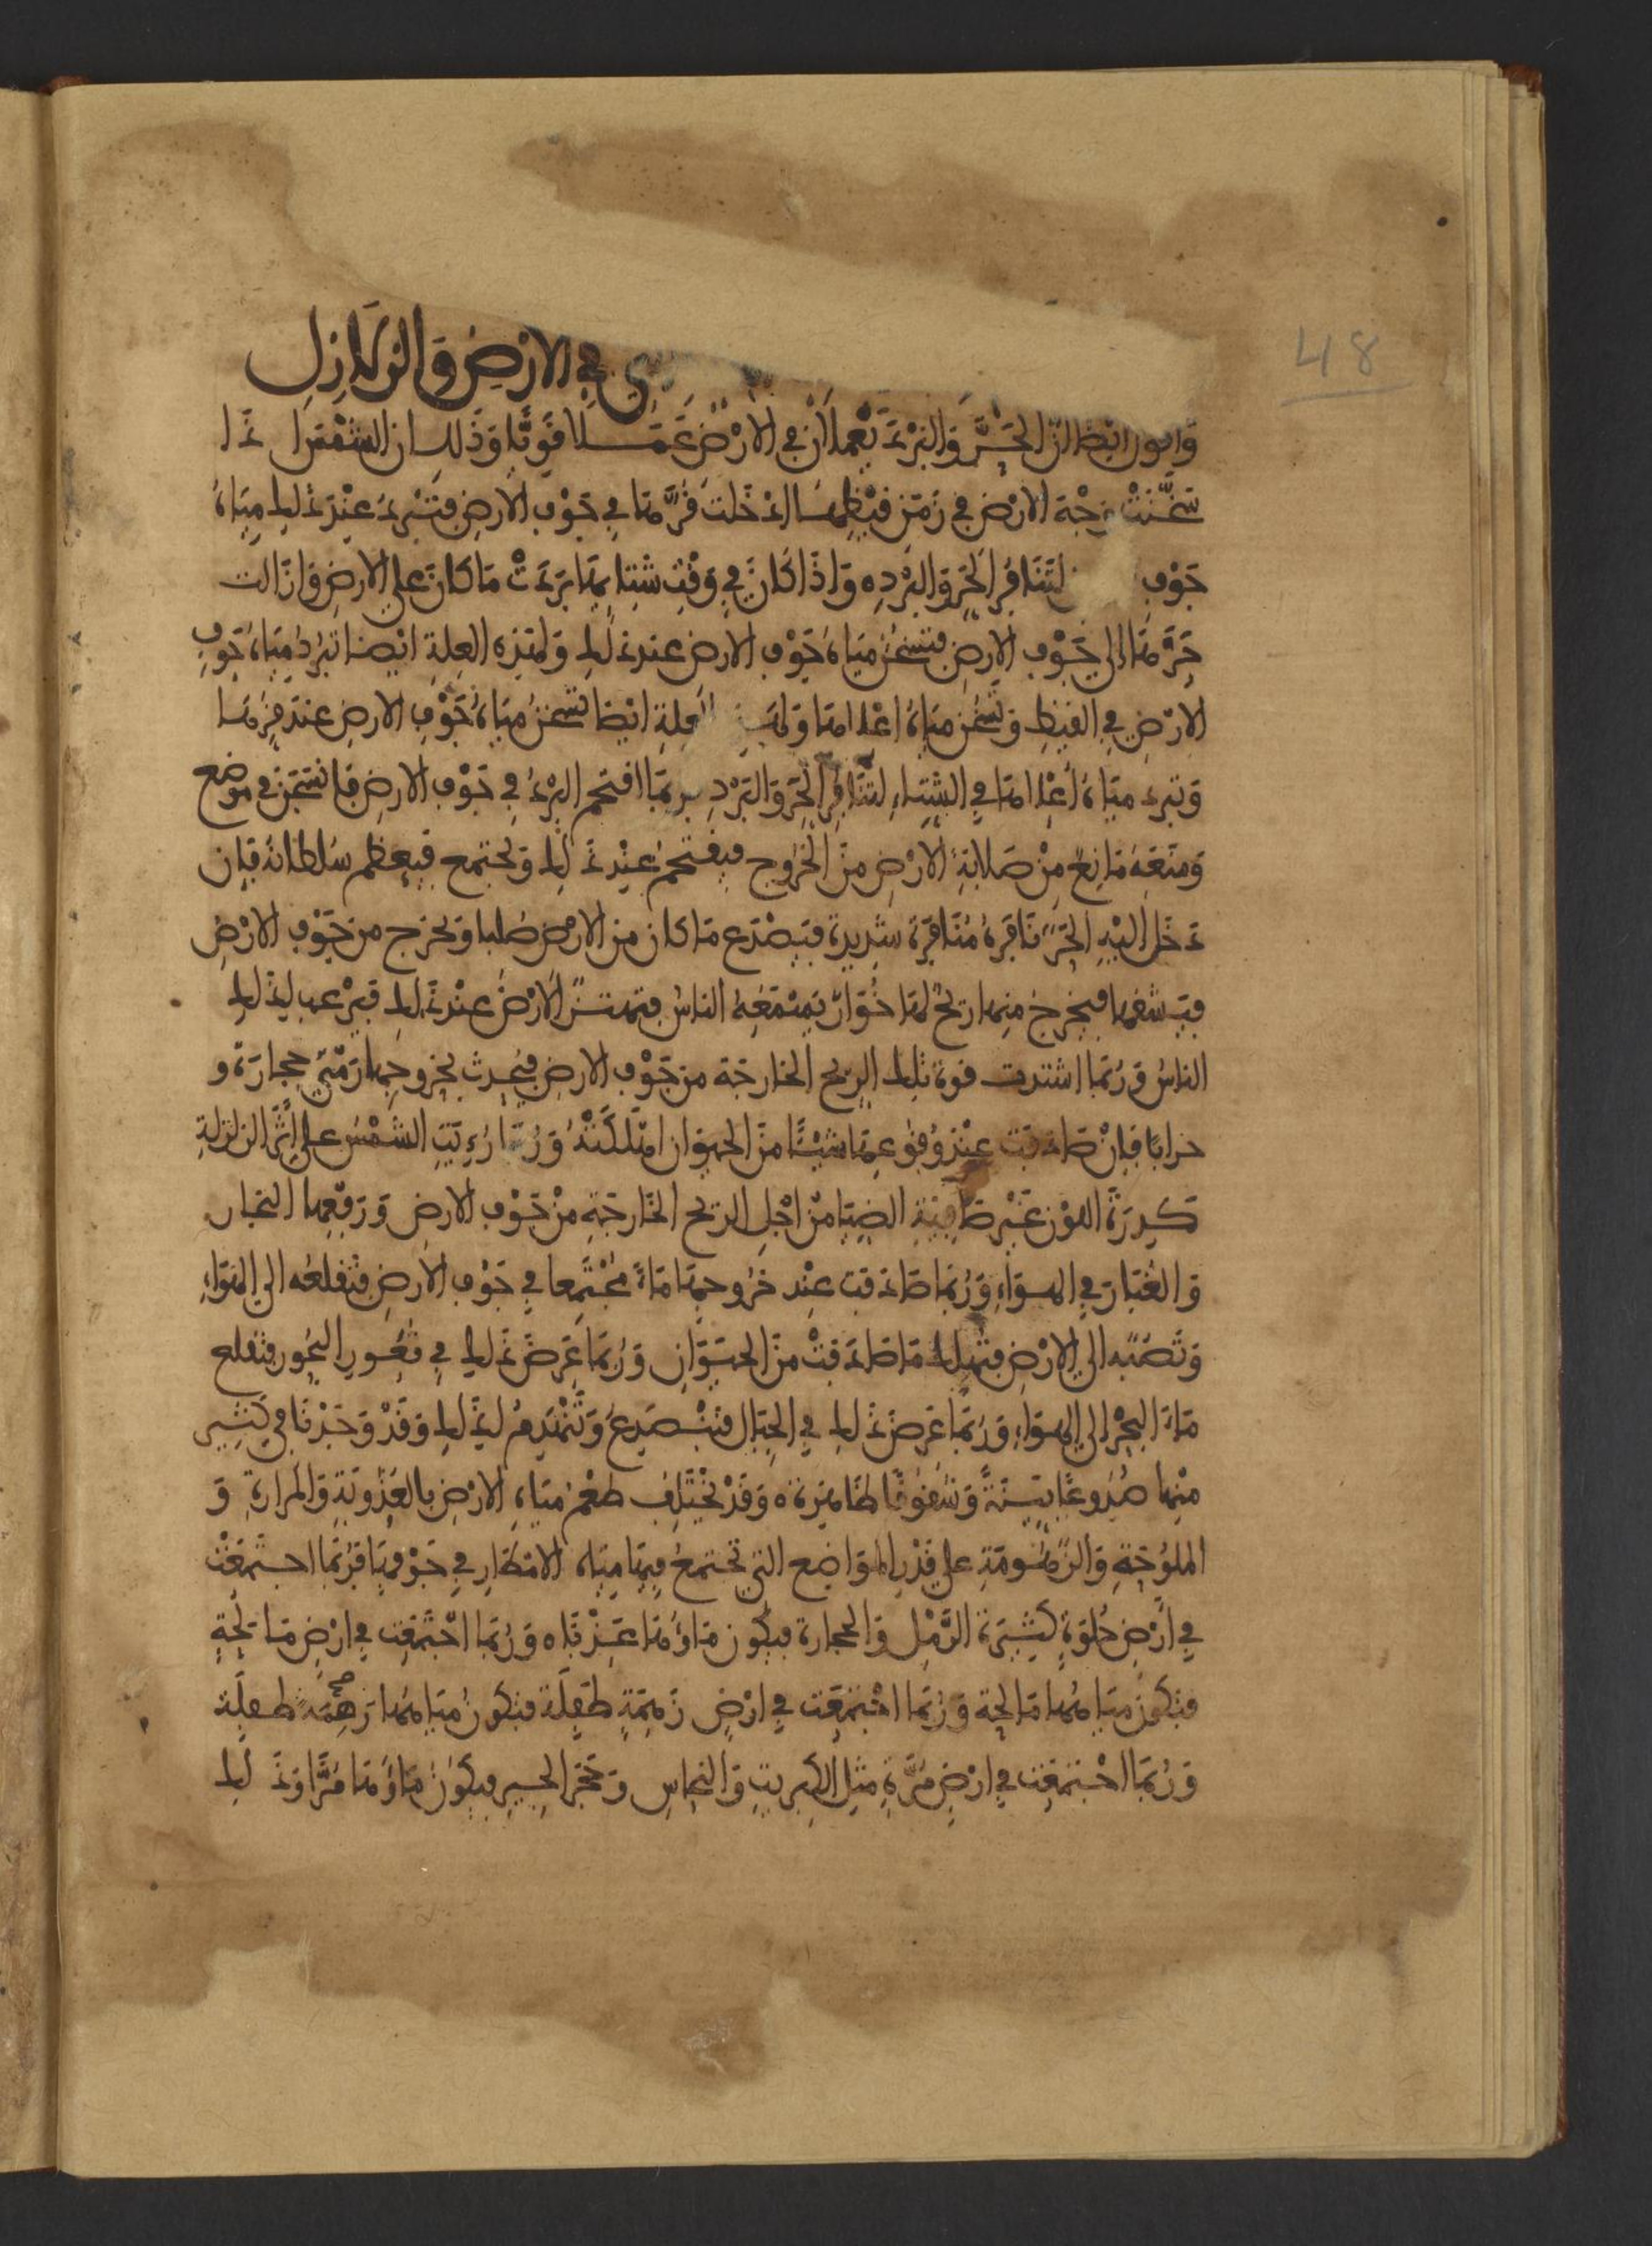 48
في الارض والزلازل
واقول ايضا ان الحر والبرد يعملان في الارض عملا قويا وذلك ان الشمس اذا
سخنت وجه الارض في زمن قيظها دخلت قرتها في جوف الارض فتبرد عند ذلك مياه
جوف لتنافر الحر والبرد ه واذا كان في وقت شتائها بردت ما كان على الارض وازالت
حرتها الى جوف الارض فتسخن مياه جوف الارض عند ذلك ولهذه العلة ايضا تبرد مياه جوف
الارض في القيظ وتسخن مياه اعلاها العلة ايضا تسخن مياه جوف الارض عند قرها
وتبرد مياه اعلاها في الشتاء لتنافر الحر والبرد وربما اقتحم البرد في جوف الارض فانسجن في موضع
ومنعه مانع من صلابة الارض من الخروج فيقتحم عند ذلك ويجتمع فيعظم سلطانه فان
دخل اليه الحر نافره منافرة شديدة فيصدع ما كان من الارض صلبا ويخرج من جوف الارض
فيشقها فيخرج منها ريح لها خوار يسمعه الناس فتهتز الارض عند ذلك فيرعب لذلك
الناس وربما اشتدت قوة تلك الريح الخارجة من جوف الارض فيحدث بخروجها رمي حجارة و
خرابا فان صادفت عند وقوعها شيئا من الحيوان اهلكته وربما رءيت الشمس على اثر الزلزلة
كدرة اللون غير صافية الضياء من اجل الريح الخارجة من جوف الارض ورفعها البخار
والغبار في الهواء وربما صادفت عند خروجها ماء مجتمعا في جوف الارض فتقلعه الى الهواء
وتصبه الى الارض فتهلك ما صادفت من الحيوان وربما عرض ذلك في قعور البحور فتقلع
ماء البحر الى الهواء وربما عرض ذلك في الجبال فتنصدع وتنهدم لذلك وقد وجدنا في كثير
منها صدوعا بينة وشقوقا ظاهرة ه وقد يختلف طعم مياه الارض بالعذوبة والمرارة و
الملوحة والزهومة على قدر المواضع التي تجتمع فيها مياه الامطار في جوفها فربما اجتمعت
في ارض حلوة كثيرة الرمل والحجارة فيكون ماؤها عذبا ه وربما اجتمعت في ارض مالحة
فتكون مياهها مالحة وربما اجتمعت في ارض زهمة طفلة فتكون مياهها زهمة طفلة
وربما اجتمعت في ارض مرة مثل الكبريت والنحاس وحجر الجير فيكون ماؤها مرا وذلك